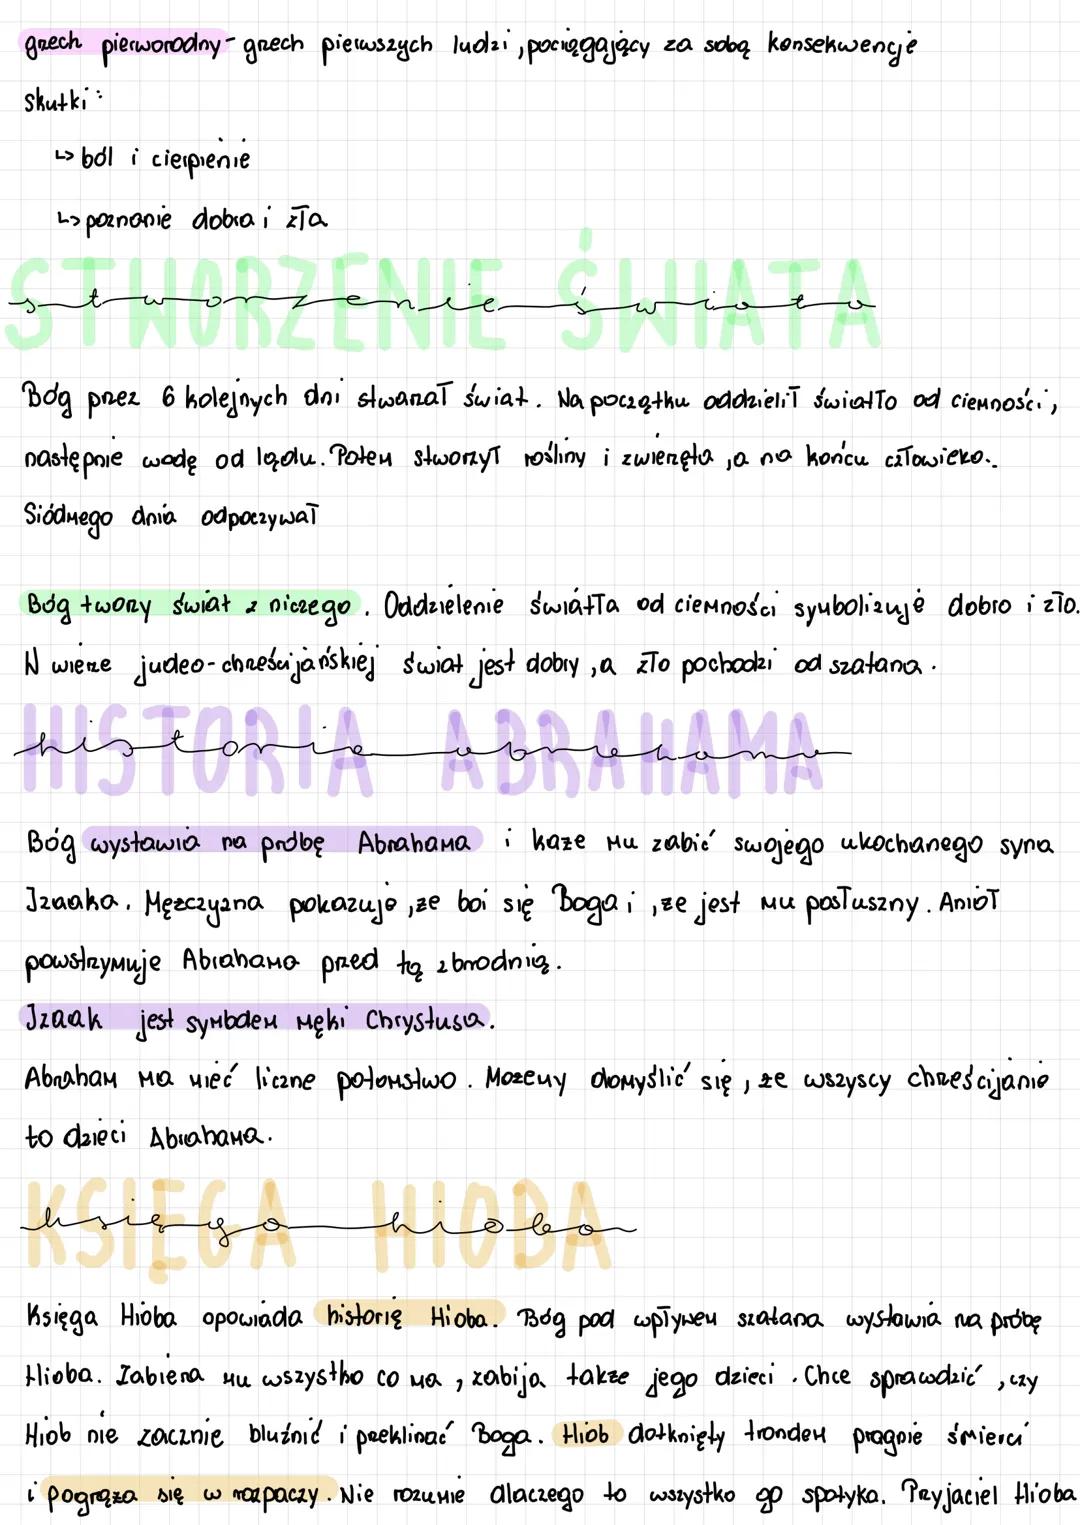 grzech pierworodny - grzech pierwszych ludzi, pociągający za sobą konsekwencje
skutki:
↳ ból i cierpienie
↳ poznanie dobra i zła
STWORZENIE ŚWIATA
stworzenie świata
Bóg przez 6 kolejnych dni stwarzał świat. Na początku oddzielił światło od ciemności,
następnie wodę od lądu. Potem stworzył rośliny i zwierzęta, a na końcu człowieka.
Siódmego dnia odpoczywał
Bóg tworzy świat z niczego. Oddzielenie światła od ciemności symbolizuje dobro i zło.
W wierze judeo-chrześcijańskiej świat jest dobry, a zło pochodzi od szatana.
HISTORIA ABRAHAMA
historia abrahama
Bóg wystawia na próbę Abrahama i każe mu zabić swojego ukochanego syna
Izaaka. Mężczyzna pokazuje, że boi się Boga i, że jest mu posłuszny. Anioł
powstrzymuje Abrahama przed tą zbrodnią.
Izaak jest symbolem męki Chrystusa.
Abraham ma mieć liczne potomstwo. Możemy domyślić się, że wszyscy chrześcijanie
to dzieci Abrahama.
KSIĘGA HIOBA
księga hioba
Księga Hioba opowiada historię Hioba. Bóg pod wpływem szatana wystawia na próbę
Hioba. Zabiera mu wszystko co ma, zabija także jego dzieci. Chce sprawdzić, czy
Hiob nie zacznie bluźnić i przeklinać Boga. Hiob dotknięty trądem pragnie śmierci
i pogrąża się w rozpaczy. Nie rozumie dlaczego to wszystko go spotyka. Przyjaciel Hioba